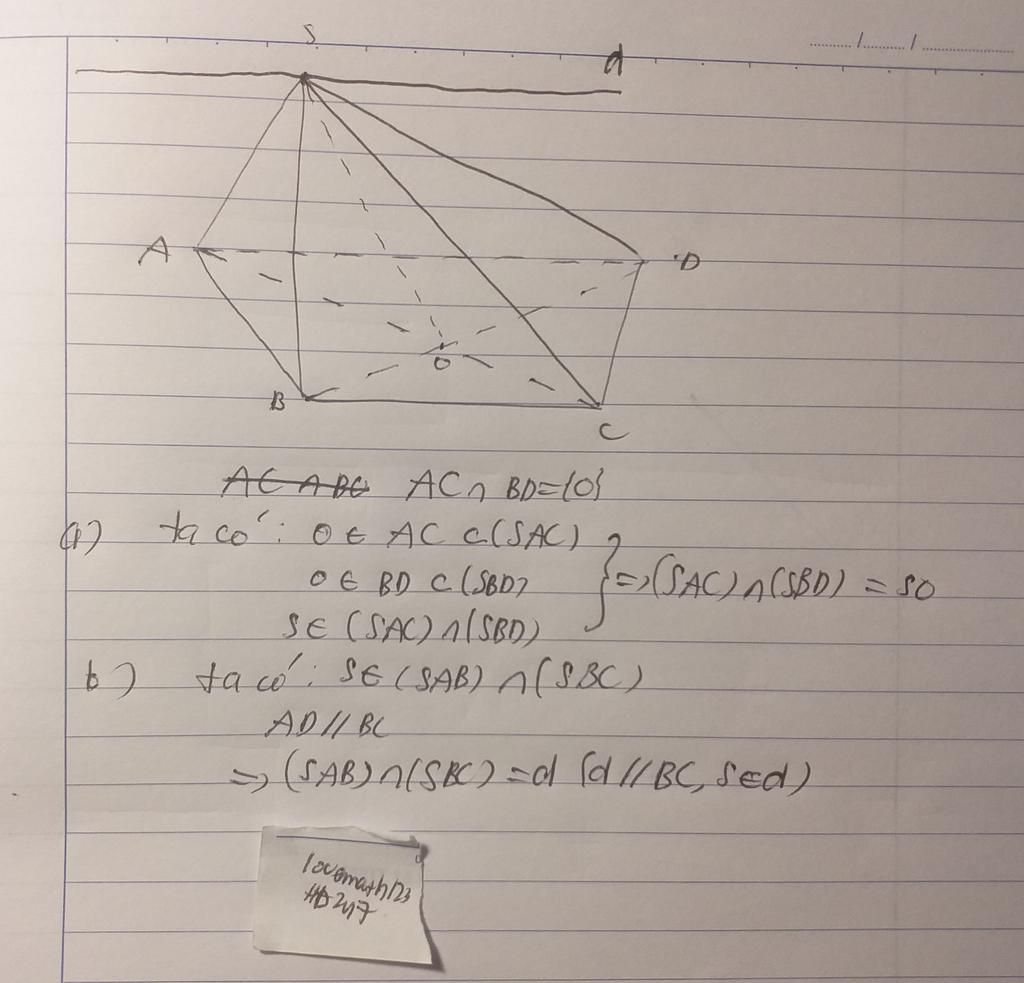 S
d
A
D
O
B
C
AC ∩ BC AC ∩ BD = {O}
a) ta có: O ∈ AC ⊂ (SAC)
O ∈ BD ⊂ (SBD) } => (SAC) ∩ (SBD) = SO
S ∈ (SAC) ∩ (SBD)
b) ta có: S ∈ (SAB) ∩ (SBC)
AD // BC
=> (SAB) ∩ (SBC) = d (d // BC, S ∈ d)
lovemath123